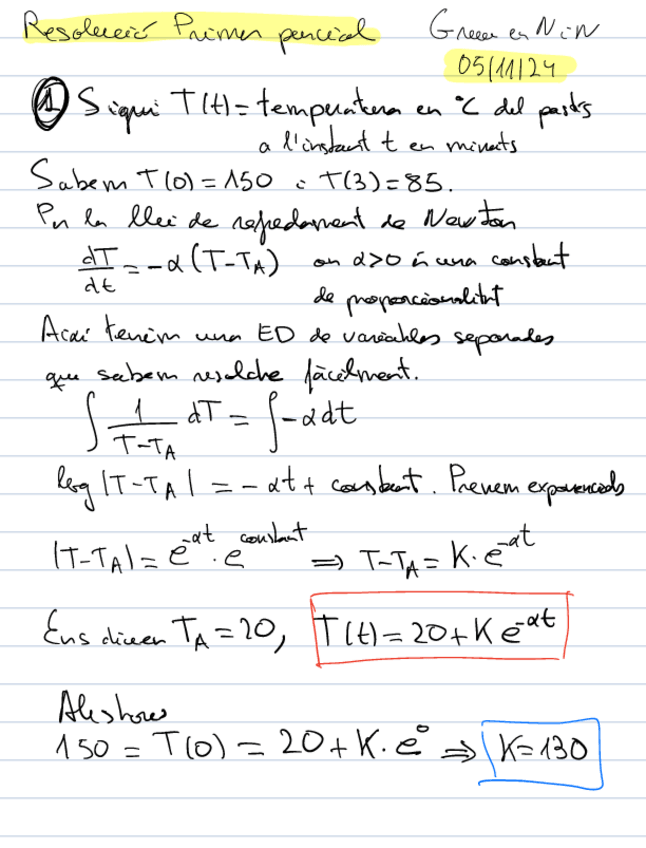 Resolució Primer parcial Grau en NiN
05/11/24
① Sigui T(t) = temperatura en °C del pastís
a l'instant t en minuts
Sabem T(0) = 150 i T(3) = 85.
Per la llei de refredament de Newton
dT/dt = -α(T-T_A) on α>0 és una constant
de proporcionalitat
Així tenim una ED de variables separades
que sabem resoldre fàcilment.
∫ 1/(T-T_A) dT = ∫ -α dt
log |T-T_A| = -αt + constant. Prenem exponencials
|T-T_A| = e^{-αt} · e^{constant} ⇒ T-T_A = K·e^{-αt}
Ens diuen T_A = 20, T(t) = 20 + K e^{-αt}
Aleshores
150 = T(0) = 20 + K·e^0 ⇒ K = 130